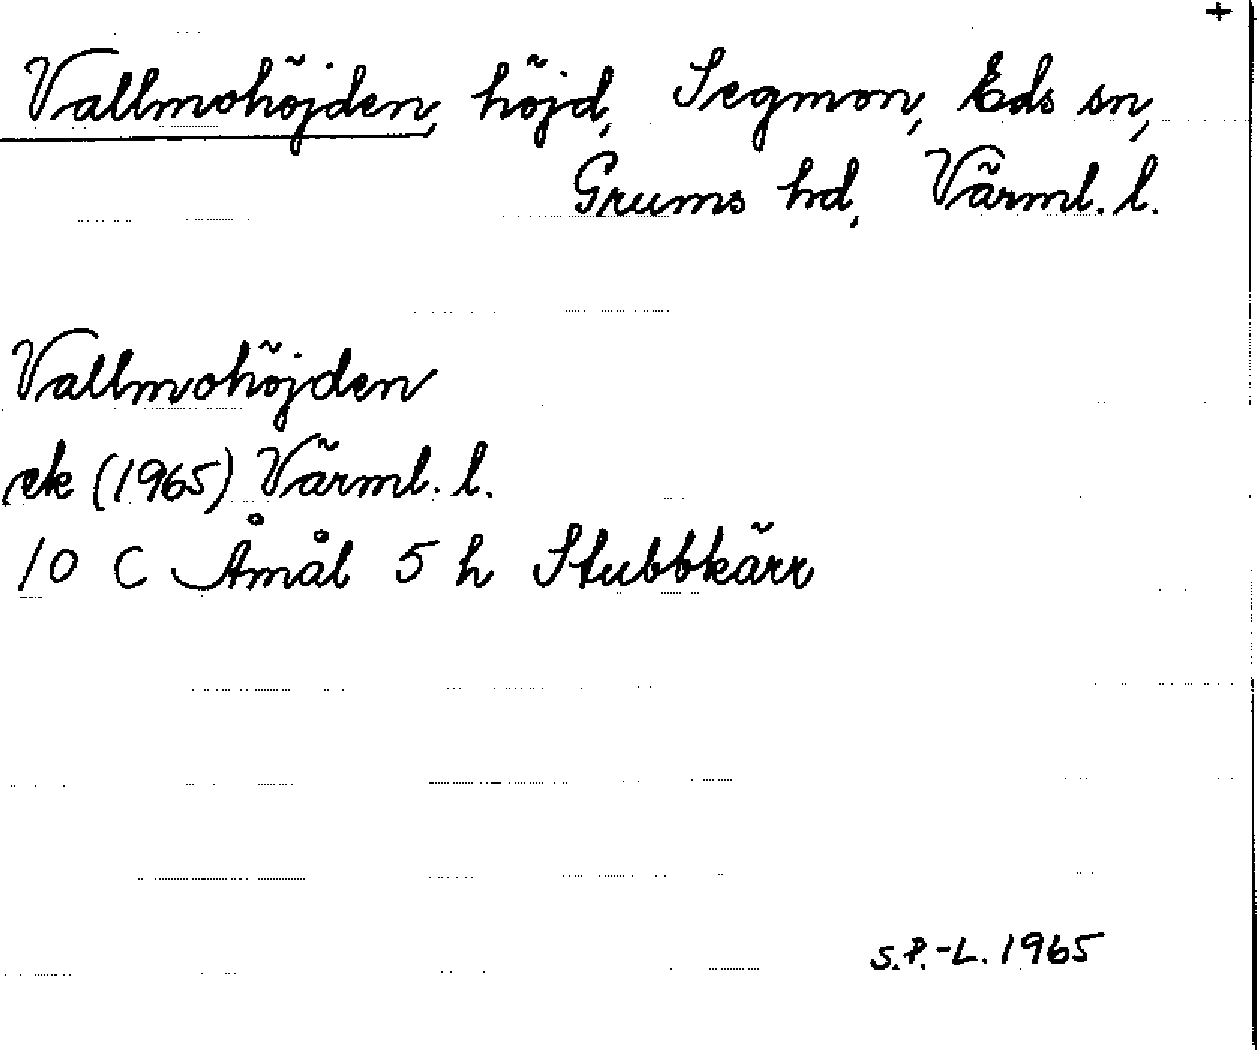 +
Vallmohöjden, höjd, Segmon, Eds sn,
Grums hd, Värml. l.
Vallmohöjden
ek (1965) Värml. l.
10 C Åmål 5 h Stubbkärr
S.P.-L. 1965